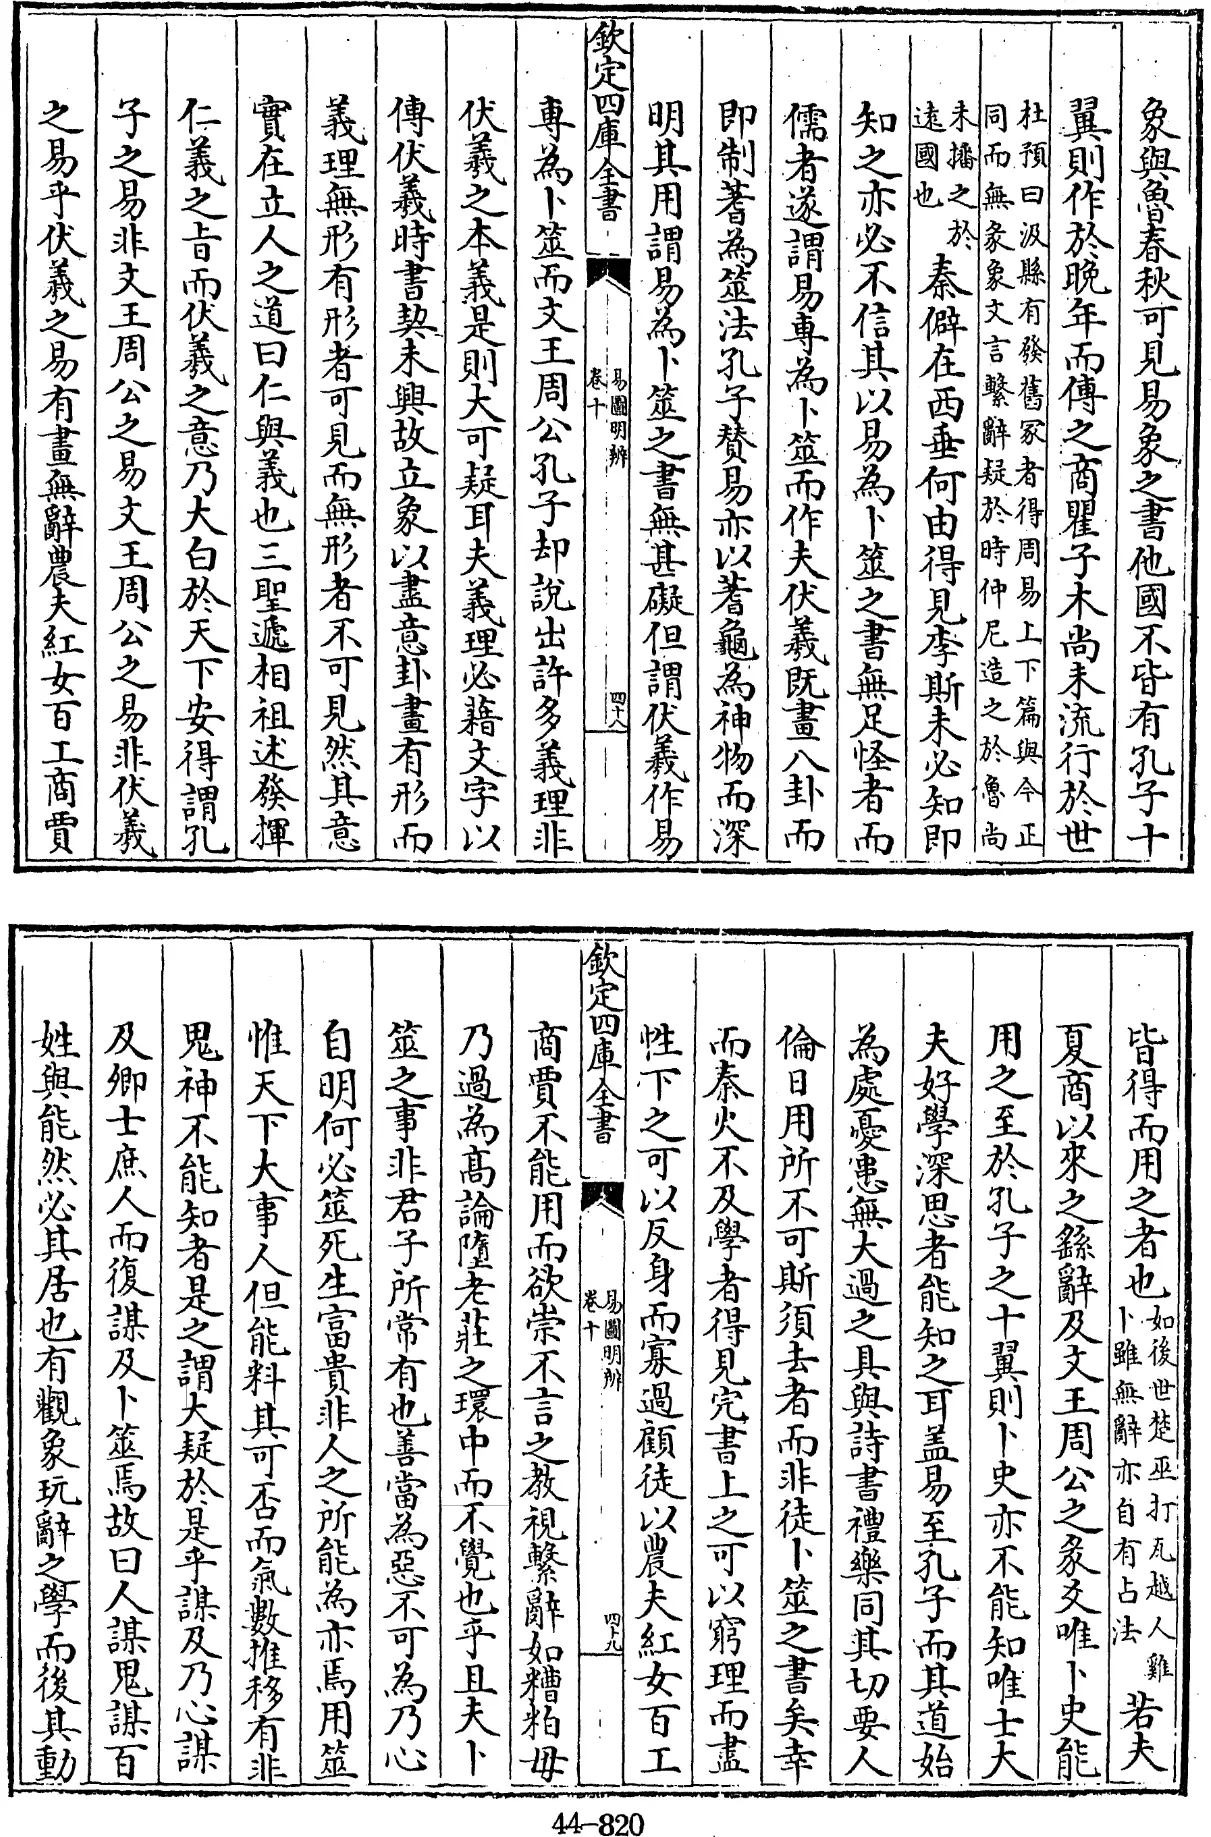 象與魯春秋可見易象之書他國不皆有孔子十
翼則作於晚年而傳之商瞿子木尚未流行於世
杜預曰汲縣有發舊冢者得周易上下篇與今正
同而無彖象文言繫辭疑於時仲尼造之於魯尚
未播之於
遠國也
秦僻在西垂何由得見李斯未必知即
知之亦必不信其以易為卜筮之書無足怪者而
儒者遂謂易專為卜筮而作夫伏羲既畫八卦而
即制蓍為筮法孔子贊易亦以蓍龜為神物而深
明其用謂易為卜筮之書無甚礙但謂伏羲作易
欽定四庫全書
易圖明辨
卷十
四十八
專為卜筮而文王周公孔子却說出許多義理非
伏羲之本義是則大可疑耳夫義理必藉文字以
傳伏羲時書契未興故立象以盡意卦畫有形而
義理無形有形者可見而無形者不可見然其意
實在立人之道曰仁與義也三聖遞相祖述發揮
仁義之旨而伏羲之意乃大白於天下安得謂孔
子之易非文王周公之易文王周公之易非伏羲
之易乎伏羲之易有畫無辭農夫紅女百工商賈
皆得而用之者也
如後世楚巫打瓦越人雞
卜雖無辭亦自有占法
若夫
夏商以來之繇辭及文王周公之彖爻唯卜史能
用之至於孔子之十翼則卜史亦不能知唯士大
夫好學深思者能知之耳蓋易至孔子而其道始
為處憂患無大過之具與詩書禮樂同其切要人
倫日用所不可斯須去者而非徒卜筮之書矣幸
而秦火不及學者得見完書上之可以窮理而盡
性下之可以反身而寡過顧徒以農夫紅女百工
欽定四庫全書
易圖明辨
卷十
四十九
商賈不能用而欲崇不言之教視繫辭如糟粕毋
乃過為高論墮老莊之環中而不覺也乎且夫卜
筮之事非君子所常有也善當為惡不可為乃心
自明何必筮死生富貴非人之所能為亦焉用筮
惟天下大事人但能料其可否而氣數推移有非
鬼神不能知者是之謂大疑於是乎謀及乃心謀
及卿士庶人而復謀及卜筮焉故曰人謀鬼謀百
姓與能然必其居也有觀象玩辭之學而後其動
44-820